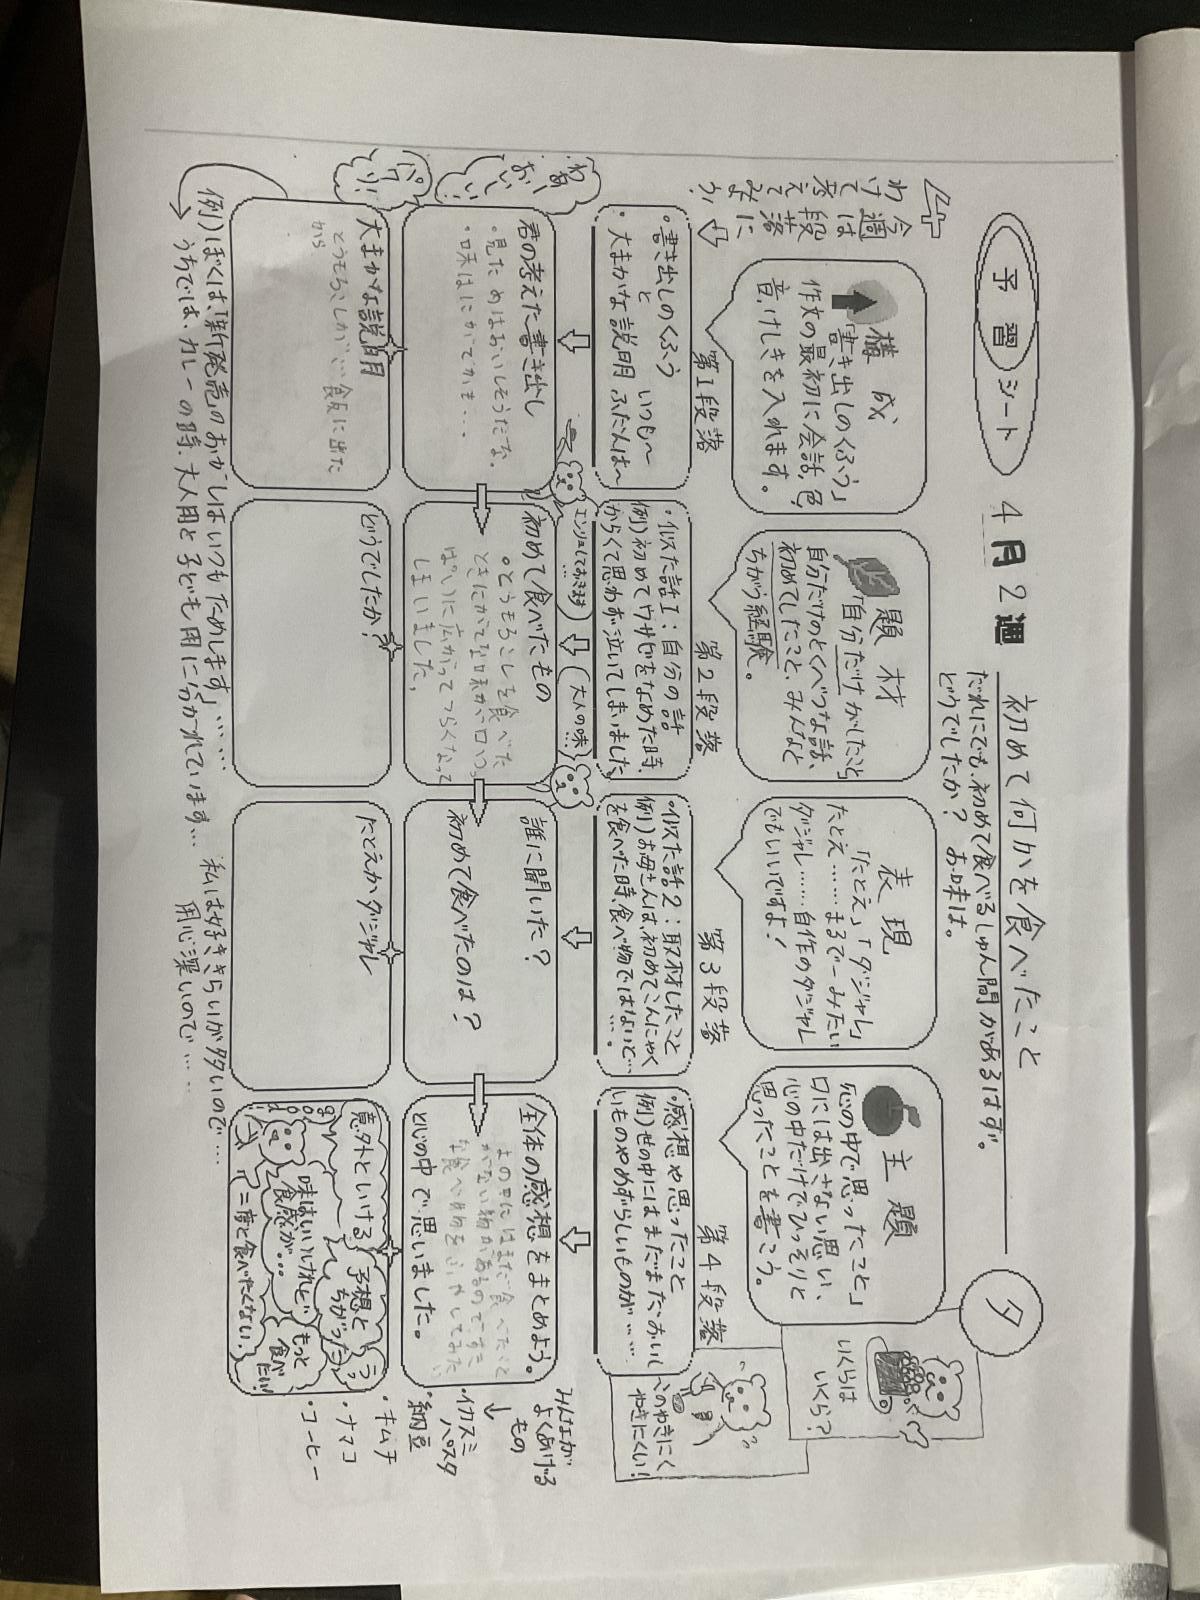 予習シート
4月2週
初めて何かを食べたこと
だれにでも、初めて食べるしゅん間があるはず。
どうでしたか? お味は。
タ
今週は段落に
わけて考えて
みよう!
構成
「書き出しのくふう」
作文の最初に会話、色、
音、けしきを入れます。
題材
「自分だけがしたこと」
自分だけのとくべつな話、
初めてしたこと、みんなと
ちがう経験。
表現
「たとえ」「ダジャレ」
たとえ……まるで〜みたい
ダジャレ……自作のダジャレ
でもいいですよ!
主題
「心の中で思ったこと」
口には出さない思い、
心の中だけでひっそりと
思ったことを書こう。
いくらは
いくら?
このやきにく
やきにくい!
第1段落
・書き出しのくふう
と
・大まかな説明
いつも〜
ふだんは〜
第2段落
・似た話1:自分の話
例)初めてワサビをなめた時、
からくて思わず泣いてしまいました
第3段落
・似た話2:取材したこと
例)お母さんは、初めてこんにゃく
を食べた時、食べ物ではないと…。
第4段落
・感想や思ったこと
例)世の中にはまだまだおいし
いものやめずらしいものが……
わあ
おいしい
パリッ!
君の考えた書き出し
・見ためはおいしそうだな。
・味はにがてかも…
エンリョしておきます…
大人の味…
初めて食べたもの
・とうもろこしを食べた
ときにがてな味が口いっ
ぱいに広がってつらくなって
しまいました。
誰に聞いた?
初めて食べたのは?
全体の感想をまとめよう。
よの中にはまだ食べたこと
がない物があるのですき
な食べ物をふやしてみたい
と心の中で思いました。
みんなが
よくあげる
もの
・イカスミ
パスタ
・納豆
・キムチ
・ナマコ
・コーヒー
大まかな説明
とうもろこしが…飯に出た
から
どうでしたか?
たとえかダジャレ
意外といける
予想と
ちがった
味はいいけれど
食感が…
もっと
食べ
たい!
二度と食べたくない!
例)ぼくは、「新発売のおかしはいつもためします」……
うちでは、カレーの時、大人用と子ども用に分かれています…
私は好ききらいが多いので…
用心深いので……